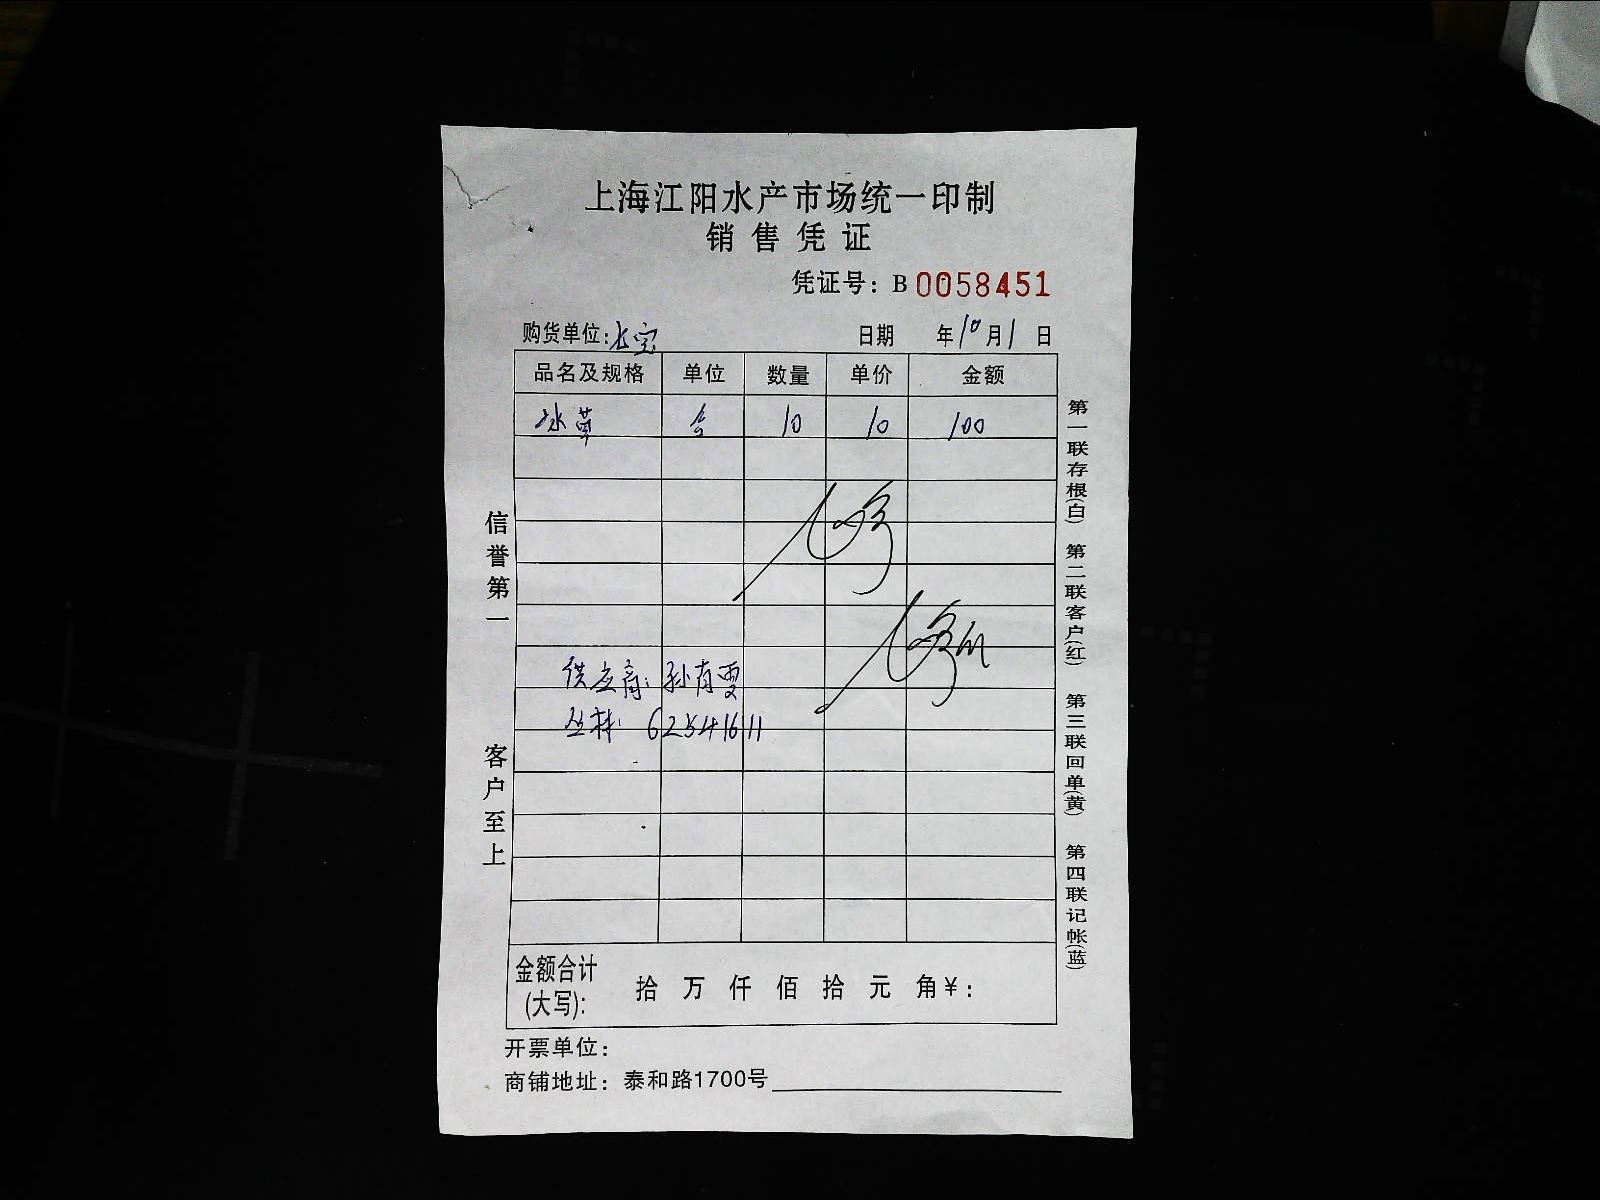 上海江阳水产市场统一印制
销售凭证
凭证号：B 0058451
购货单位：长宝 日期 年10月1日
品名及规格 单位 数量 单价 金额
冰草 盒 10 10 100
供应商：孙有雯
丛林：62541611
金额合计(大写)： 拾 万 仟 佰 拾 元 角￥：
开票单位：
商铺地址：泰和路1700号
信誉第一 客户至上
第一联存根(白) 第二联客户(红) 第三联回单(黄) 第四联记帐(蓝)